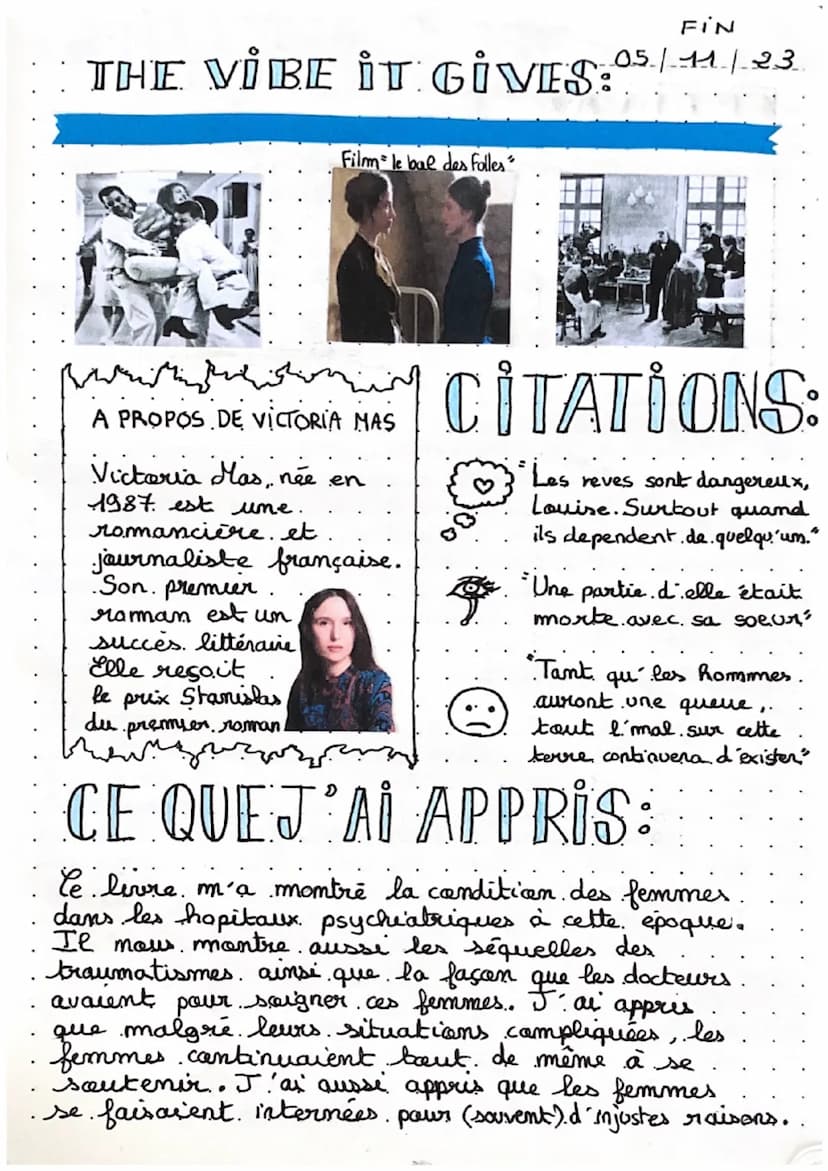 FiN
05/11/23
THE ViBE iT GiVES:
Film "le bal des folles"
A PROPOS DE ViCTORiA MAS
Victoria Mas, née en
1987 est une
romancière et
journaliste française.
Son premier
roman est un
succès littéraire
Elle reçoit
le prix Stanislas
du premier roman
CiTATiONS:
"Les reves sont dangereux,
Louise. Surtout quand
ils dependent de quelqu'un."
"Une partie d'elle était
morte avec sa soeur"
"Tant qu'les hommes
auront une queue,
tout l'mal sur cette
terre continuera d'exister"
CE QUE J'Ai APPRiS:
Ce livre m'a montré la condition des femmes
dans les hopitaux psychiatriques à cette époque.
Il nous montre aussi les séquelles des
traumatismes ainsi que la façon que les docteurs
avaient pour soigner ces femmes. J'ai appris
que malgré leurs situations compliquées, les
femmes continuaient tout de même à se
soutenir. J'ai aussi appris que les femmes
se faisaient internées pour (souvent) d'injustes raisons.